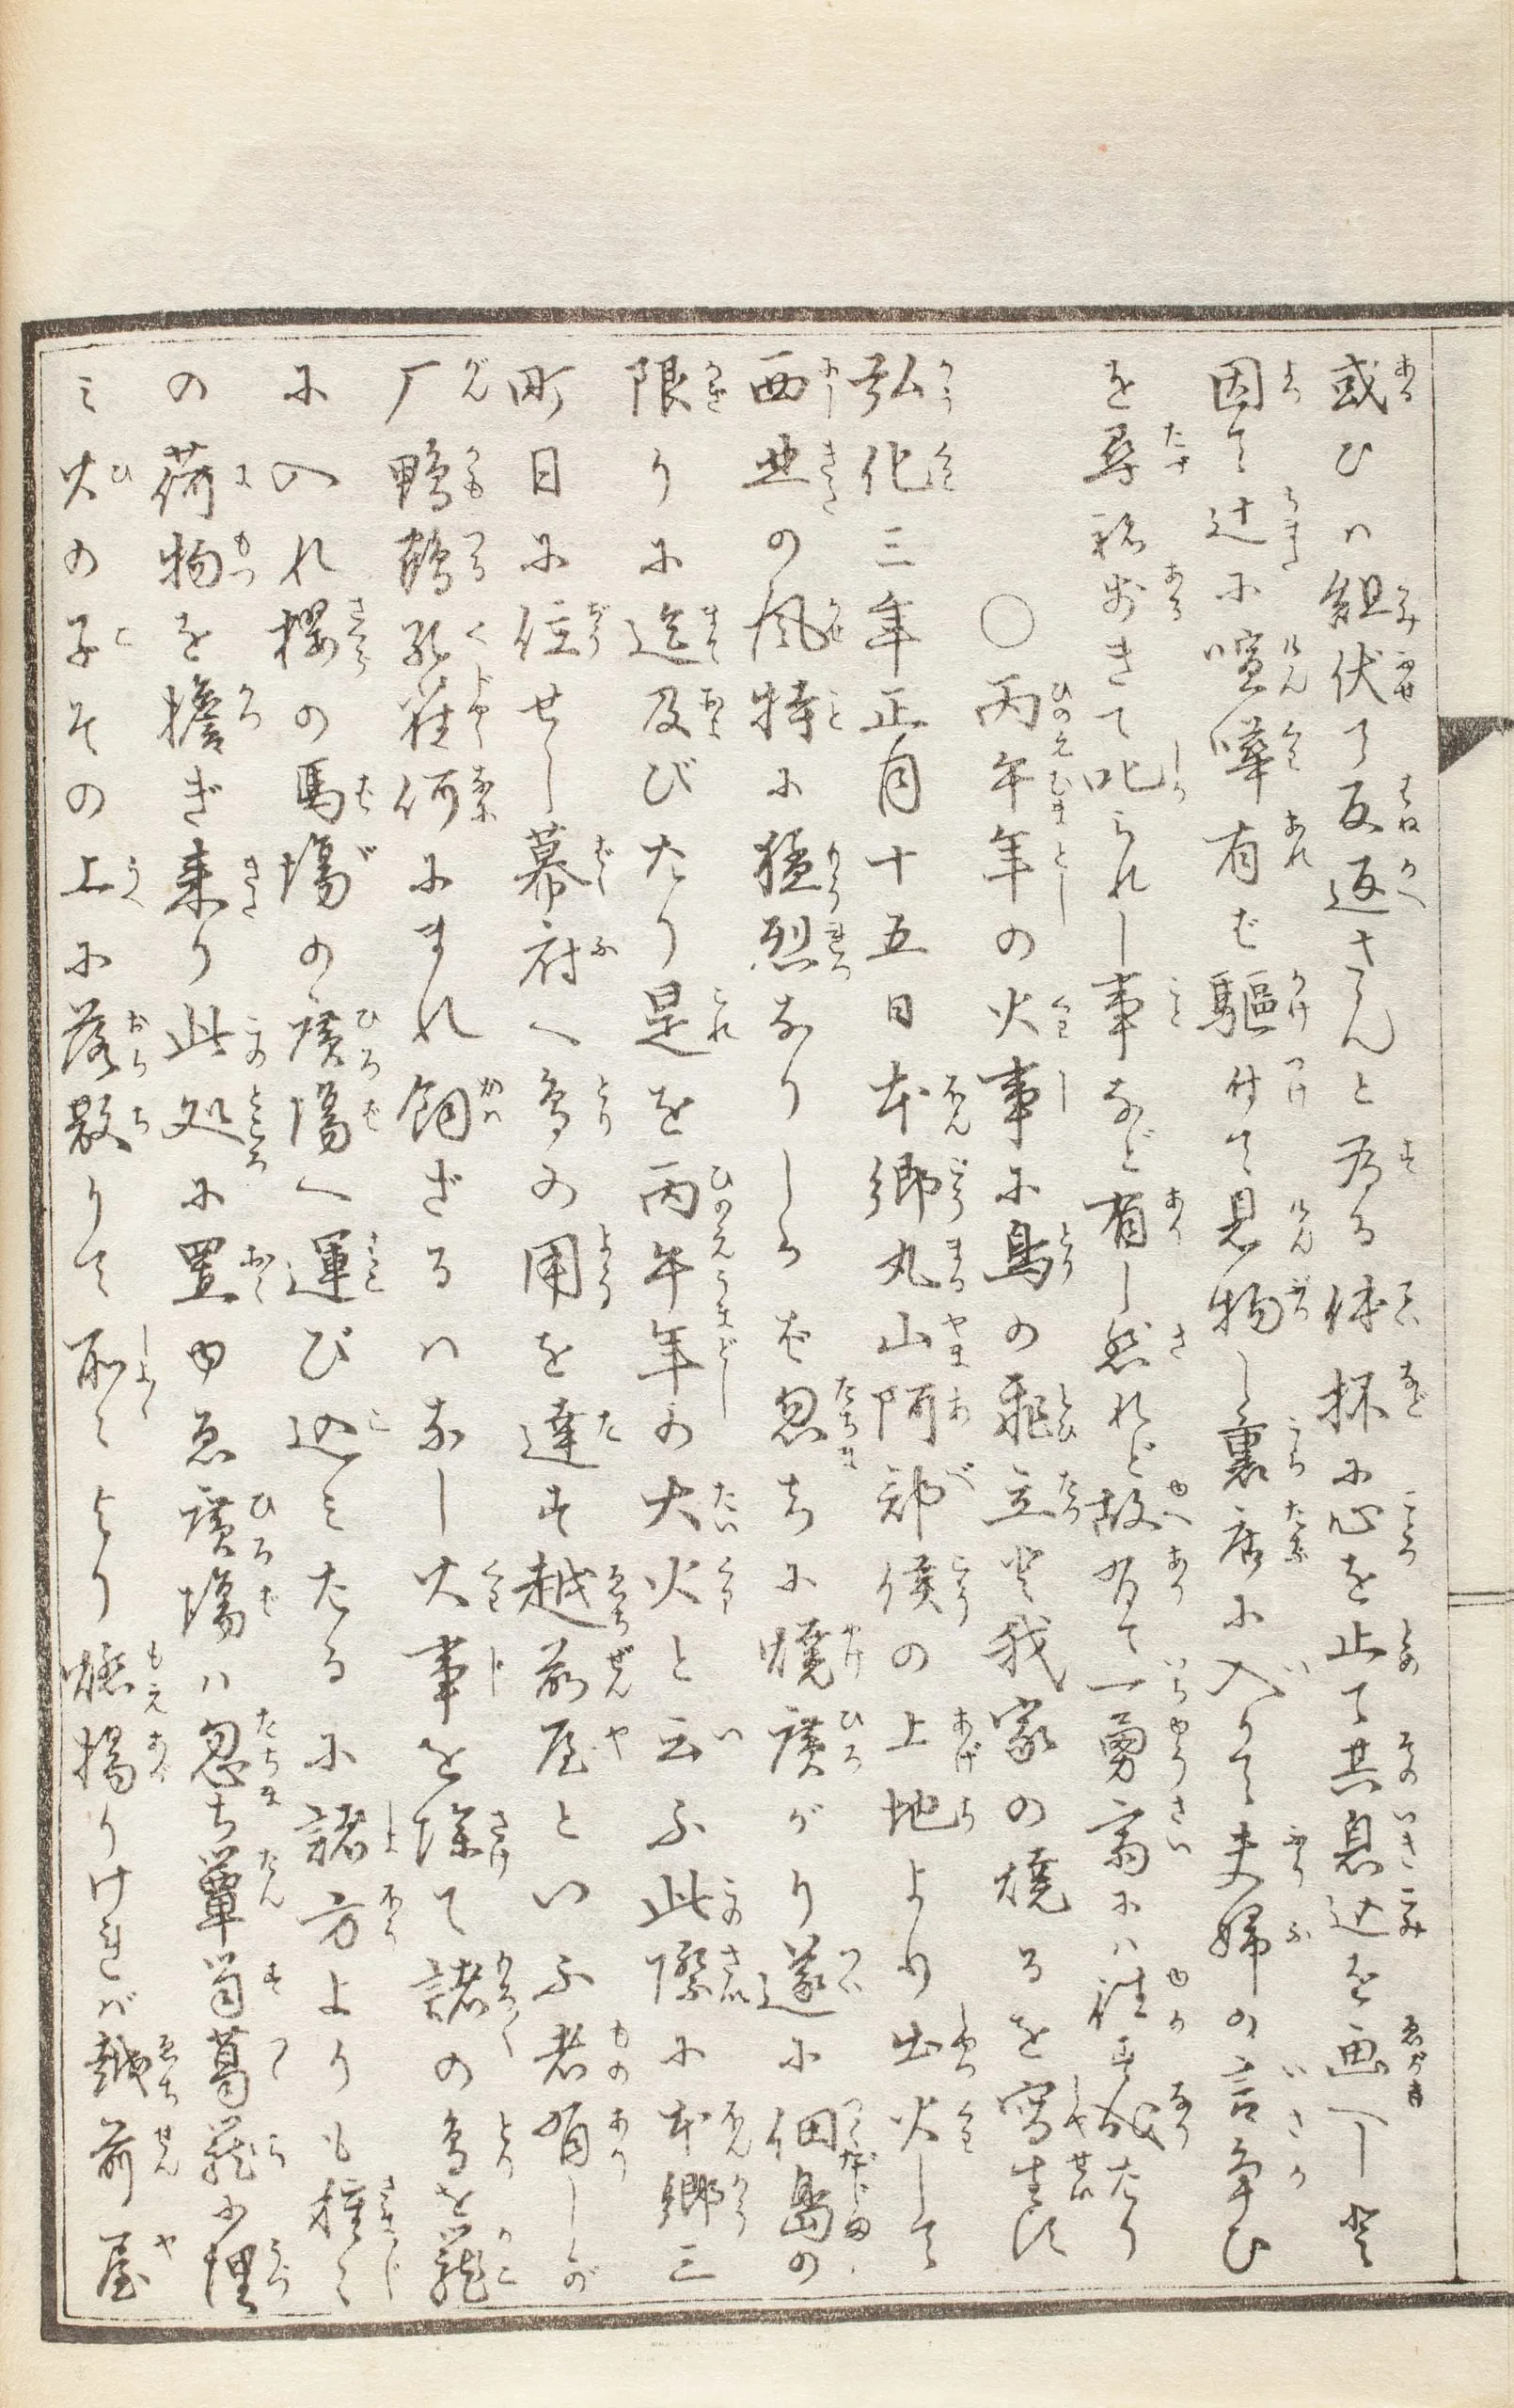 或ひハ組伏て反返さんと為る体抔に心を止て其息込を画へし と
因て辻に喧嘩有ば駆付て見物し裏店に入りて夫婦の言争ひ
を尋ね歩きて叱られし事など有し然れど故有て一勇斎にハ従はず成たり
〇丙午年の火事に鳥の飛立と我家の焼るを写生す
弘化三年正月十五日本郷丸山阿部侯の上地より出火して
西北の風特に猛烈なりしかば忽ちに焼広がり遂に佃島の
限りに迄及びたり是を丙午年の大火と云ふ此際に本郷三
町目に住せし幕府へ鳥の用を達す越前屋といふ者有しが
厂鴨鶴孔雀何にまれ飼ざるハなし火事を除て諸の鳥を籠
に入れ桜の馬場の広場へ運び込ミたるに諸方よりも種々
の荷物を担ぎ来り此処に置ゆゑ広場ハ忽ち箪笥葛籠に埋
ミ火の子その上に落散りて所々より燃揚りけれバ越前屋